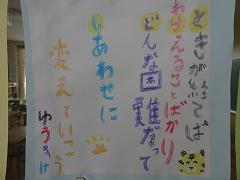 ときがたてば
わらえることばかり
どんな困難だって
しあわせに
変えていこう